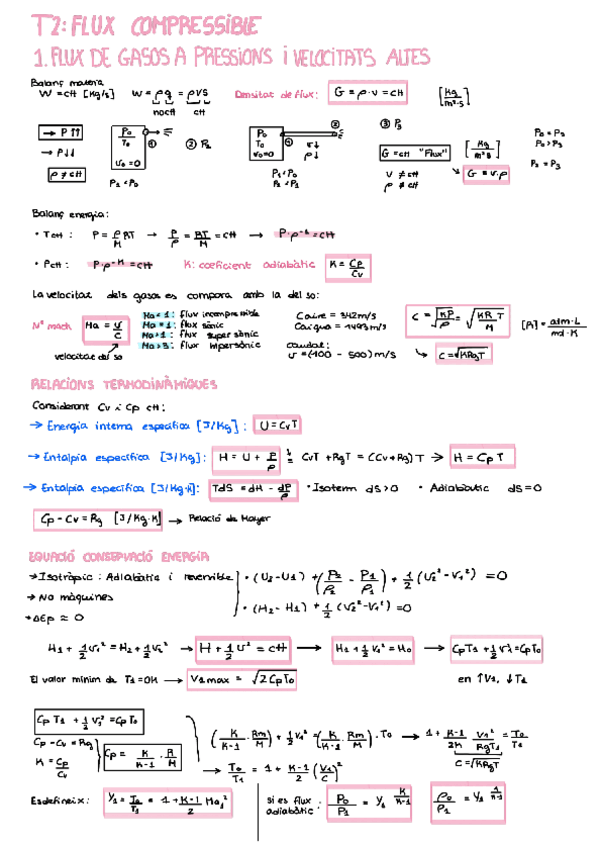 T2: FLUX COMPRESSIBLE
1. FLUX DE GASOS A PRESSIONS i VELOCITATS ALTES
Balanç matèria
W = ctt [Kg/s] W = ρq = ρvS Densitat de flux: G = ρ·v = ctt [Kg/m²·s]
no ctt ctt
→ P↑↑ P₀ T₀ v₀=0 ① ② P₂ P₀ T₀ v₀=0 ① v↓ P↓ ② ③ P₃
→ P↓↓ G = ctt "Flux" [Kg/m²s]
ρ ≠ ctt P₁ < P₀ P₁ < P₀ v ≠ ctt G = v·ρ
P₂ < P₁ ρ ≠ ctt
Balanç energia:
• Tctt: P = ρRT/M → P/ρ = RT/M = ctt → P·ρ⁻¹ = ctt
• Pctt: P·ρ⁻ᴷ = ctt K: coeficient adiabàtic K = Cp/Cv
La velocitat dels gasos es compara amb la del so:
Nº mach Ma = v/c
velocitat del so
Ma < 1: flux incompressible
Ma = 1: flux sònic
Ma > 1: flux supersònic
Ma > 3: flux hipersònic
Caire = 342 m/s
Caigua = 1493 m/s
v = (100 - 500) m/s
c = √KP/√ρ = √(KR T/M) [R] = atm·L/mol·K
c = √KRgT
RELACIONS TERMODINÀMIQUES
Considerant Cv i Cp ctt:
→ Energia interna específica [J/Kg]: U = CvT
→ Entalpia específica [J/Kg]: H = U + P/ρ = CvT + RgT = (Cv+Rg)T → H = CpT
→ Entalpia específica [J/Kg·K]: TdS = dH - dP/ρ • Isoterm dS>0 • Adiabàtic dS=0
Cp - Cv = Rg [J/Kg·K] → Relació de Mayer
EQUACIÓ CONSERVACIÓ ENERGIA
→ Isotròpic: Adiabàtic i reversible • (U₂-U₁) + (P₂/ρ₂ - P₁/ρ₁) + 1/2 (v₂² - v₁²) = 0
→ No màquines • (H₂-H₁) + 1/2 (v₂²-v₁²) = 0
→ ΔEp ≈ 0
H₁ + 1/2 v₁² = H₂ + 1/2 v₂² → H + 1/2 v² = ctt → H₁ + 1/2 v₁² = H₀ → CpT₁ + 1/2 v₁² = CpT₀
El valor mínim de T₁=0K → v₁max = √2CpT₀ en ↑v₁, ↓T₁
CpT₁ + 1/2 v₁² = CpT₀
Cp - Cv = Rg
K = Cp/Cv
Cp = K/K-1 · R/M
(K/K-1 · Rm/M) + 1/2 v₁² = (K/K-1 · Rm/M) · T₀ → 1 + K-1/2K v₁²/RgT₁ = T₀/T₁
c = √KRgT
→ T₀/T₁ = 1 + K-1/2 (v₁/c)²
Es defineix: Y₁ = T₀/T₁ = 1 + K-1/2 Ma₁² si es flux adiabàtic: P₀/P₁ = Y₁^(K/K-1) ρ₀/ρ₁ = Y₁^(1/K-1)